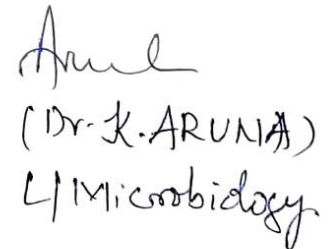 Arul
(Dr. K. ARUNA)
L/Microbiology